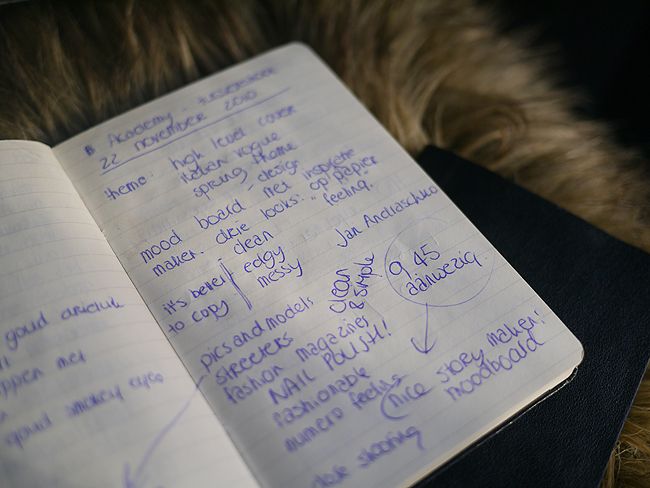 goud
ppen met
goud smokey eyes
Academy
22 november 2010
thema: high level cover
italian vogue
spring theme
mood board met inspiratie
maken. drie looks: op papier
- design "feeling"
- clean
Jan Andraschko
it's better edgy
to copy messy
clean
& simple
9.45
aanwezig
pics and models
streeters
fashion magazines
NAIL POLISH!
fashionable
numero feeling
nice story maken!
moodboard
shooting